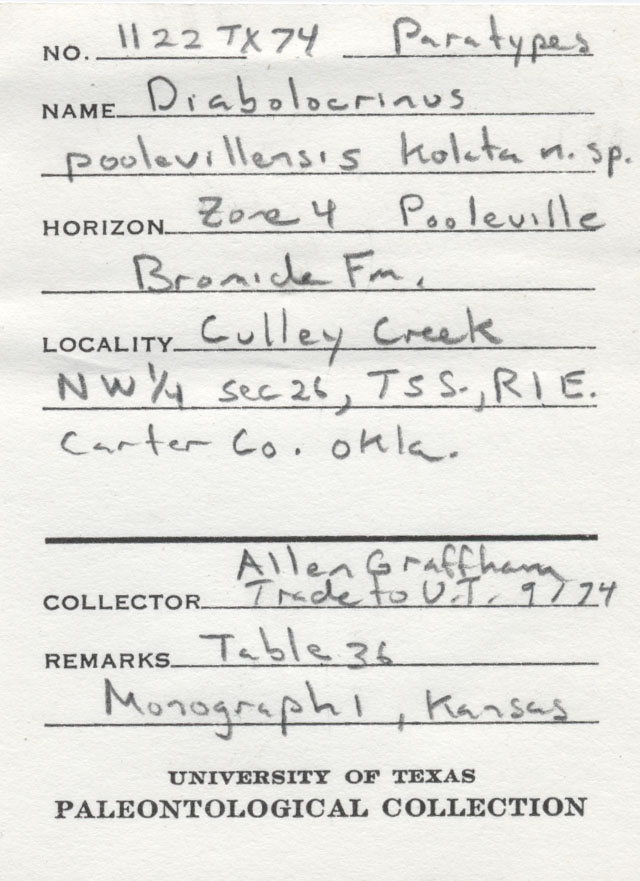 NO. 1122 TX 74 Paratypes
NAME Diabolocrinus
poolevillensis Kolata n. sp.
HORIZON Zone 4 Pooleville
Bromide Fm.
LOCALITY Culley Creek
NW 1/4 sec 26, T5S., R1E.
Carter Co. Okla.
Allen Graffham
COLLECTOR Trade to U.T. 9/74
REMARKS Table 36
Monograph 1, Kansas
UNIVERSITY OF TEXAS
PALEONTOLOGICAL COLLECTION